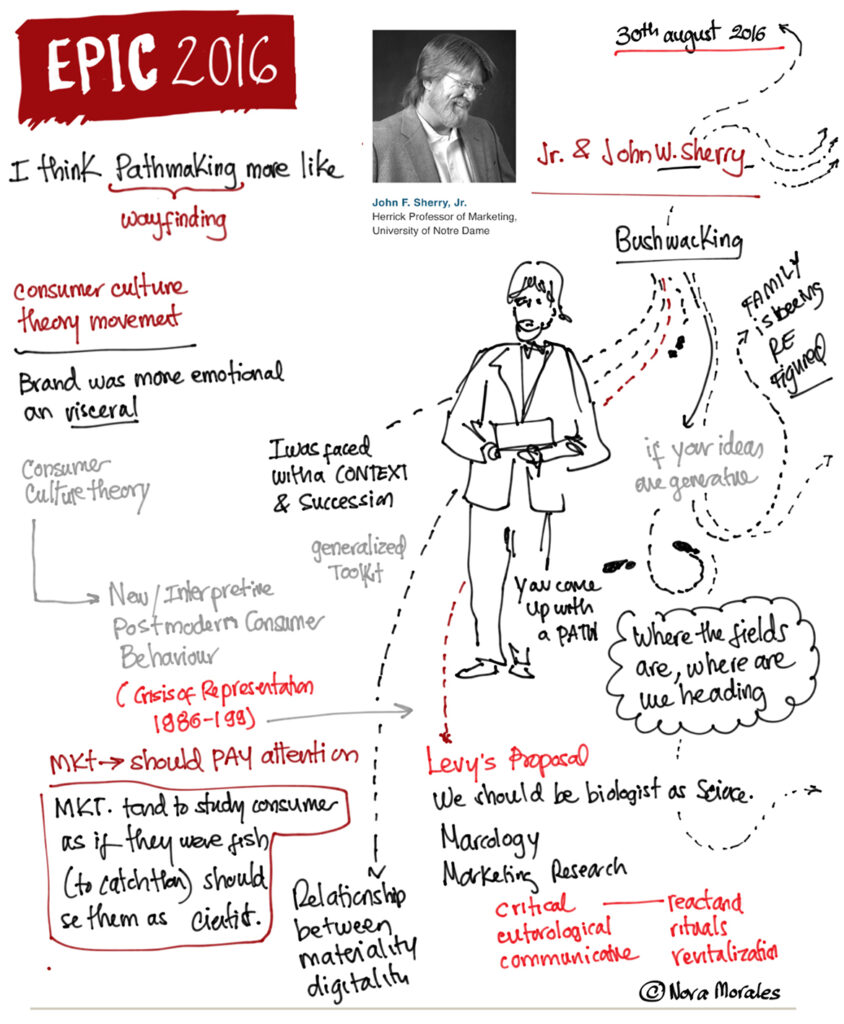 EPIC 2016
30th august 2016
I think Pathmaking more like
wayfinding
Jr. & John W. Sherry
John F. Sherry, Jr.
Herrick Professor of Marketing,
University of Notre Dame
Bushwacking
FAMILY
is beeing
RE
figured
consumer culture
theory movement
Brand was more emotional
an visceral
Consumer
Culture theory
I was faced
with a CONTEXT
& Succession
generalized
Toolkit
if your ideas
are generative
New/Interpretive
Postmodern Consumer
Behaviour
(Crisis of Representation
1986-199)
You come
up with
a PATH
Where the fields
are, where are
we heading
MKt → should PAY attention
MKT. tend to study consumer
as if they were fish
(to catch) should
se them as
Relationship
between
materiality
digitality
Levy's Proposal
We should be biologist as Science.
Marcology
Marketing Research
critical
communicative
react and
rituals
revitalization
© Nora Morales